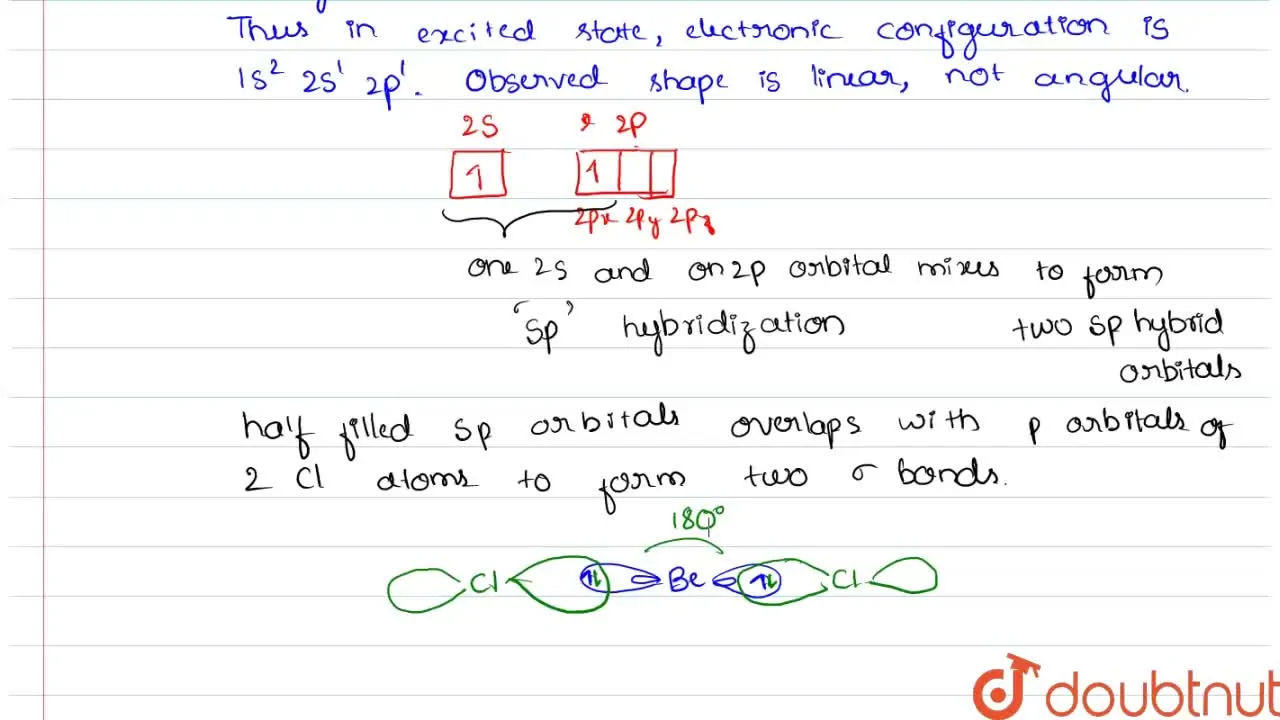 Thus in excited state, electronic configuration is
1s² 2s¹ 2p¹. Observed shape is linear, not angular.
2S 2P
1 1
2px 2py 2pz
one 2s and on 2p orbital mixes to form
'Sp' hybridization two sp hybrid
orbitals
half filled sp orbitals overlaps with p orbitals of
2 Cl atoms to form two σ bonds.
180°
Cl ⇅ Be ⇅ Cl
doubtnut